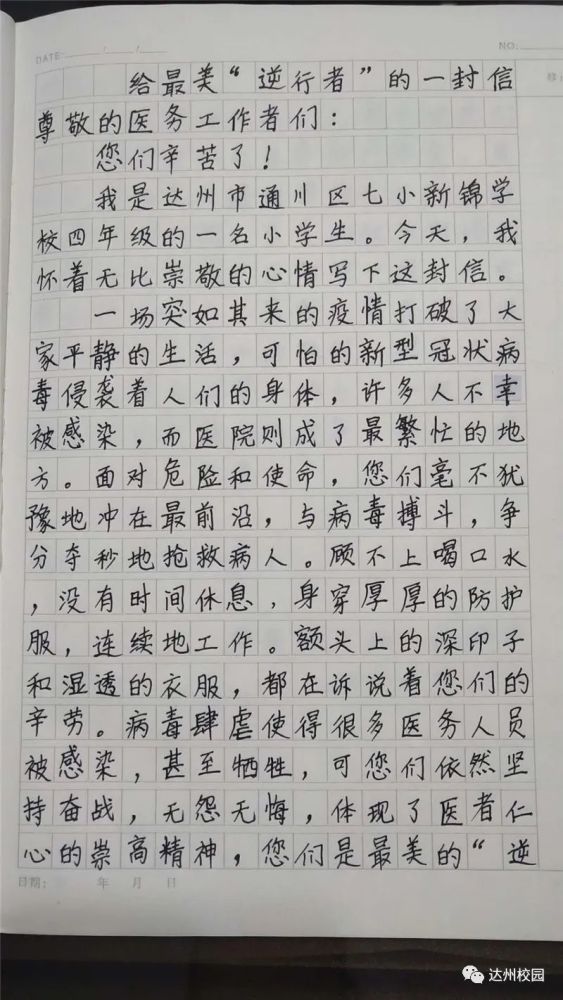 DATE: / /
NO:
给最美“逆行者”的一封信
尊敬的医务工作者们：
您们辛苦了！
我是达州市通川区七小新锦学
校四年级的一名小学生。今天，我
怀着无比崇敬的心情写下这封信。
一场突如其来的疫情打破了大
家平静的生活，可怕的新型冠状病
毒侵袭着人们的身体，许多人不幸
被感染，而医院则成了最繁忙的地
方。面对危险和使命，您们毫不犹
豫地冲在最前沿，与病毒搏斗，争
分夺秒地抢救病人。顾不上喝口水
，没有时间休息，身穿厚厚的防护
服，连续地工作。额头上的深印子
和湿透的衣服，都在诉说着您们的
辛劳。病毒肆虐使得很多医务人员
被感染，甚至牺牲，可您们依然坚
持奋战，无怨无悔，体现了医者仁
心的崇高精神，您们是最美的“逆
日期： 年 月 日
达州校园